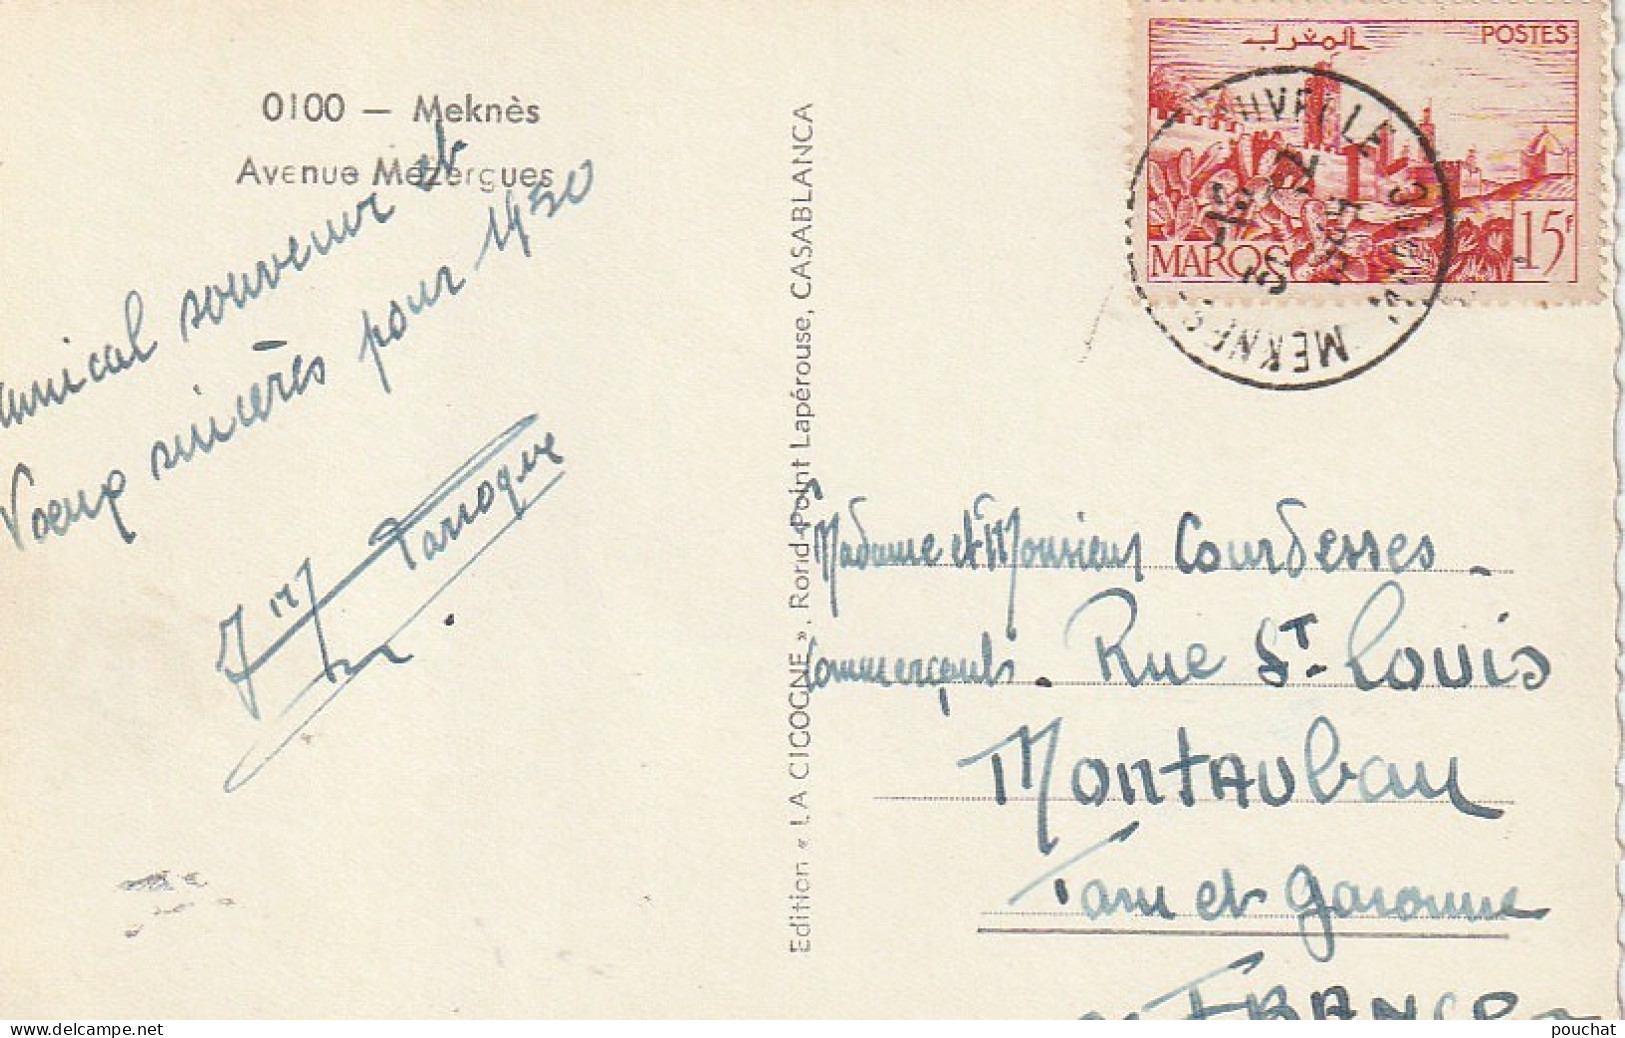 0100 – Meknès
Avenue Mezergues
Amical souvenir et
Voeux sincères pour 1950
Tarroque
Edition « LA CICOGNE », Rond-Point Lapérouse, CASABLANCA
المغرب
POSTES
MAROC
15F
MEKNES
Madame et Monsieur Courdesses.
Commerçants. Rue St. Louis
Montauban
Tarn et Garonne
FRANCE
pouchat